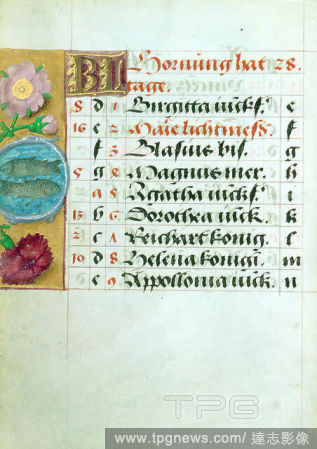 KL Hornung hat 28.
tage.
8 d 1 Birgitta iūckf. e
16 e 2 Marie liechtmess f
f 3 Blasius bis. g
5 g 4 Magnus mer. h
A 5 Agatha iūckf. i
13 b 6 Dorothea iūck. k
2 c 7 Reichart konig. l
10 d 8 Helena konigi. m
e 9 Appollonia iūck. n
TPG
www.tpgnews.com/ 達志影像